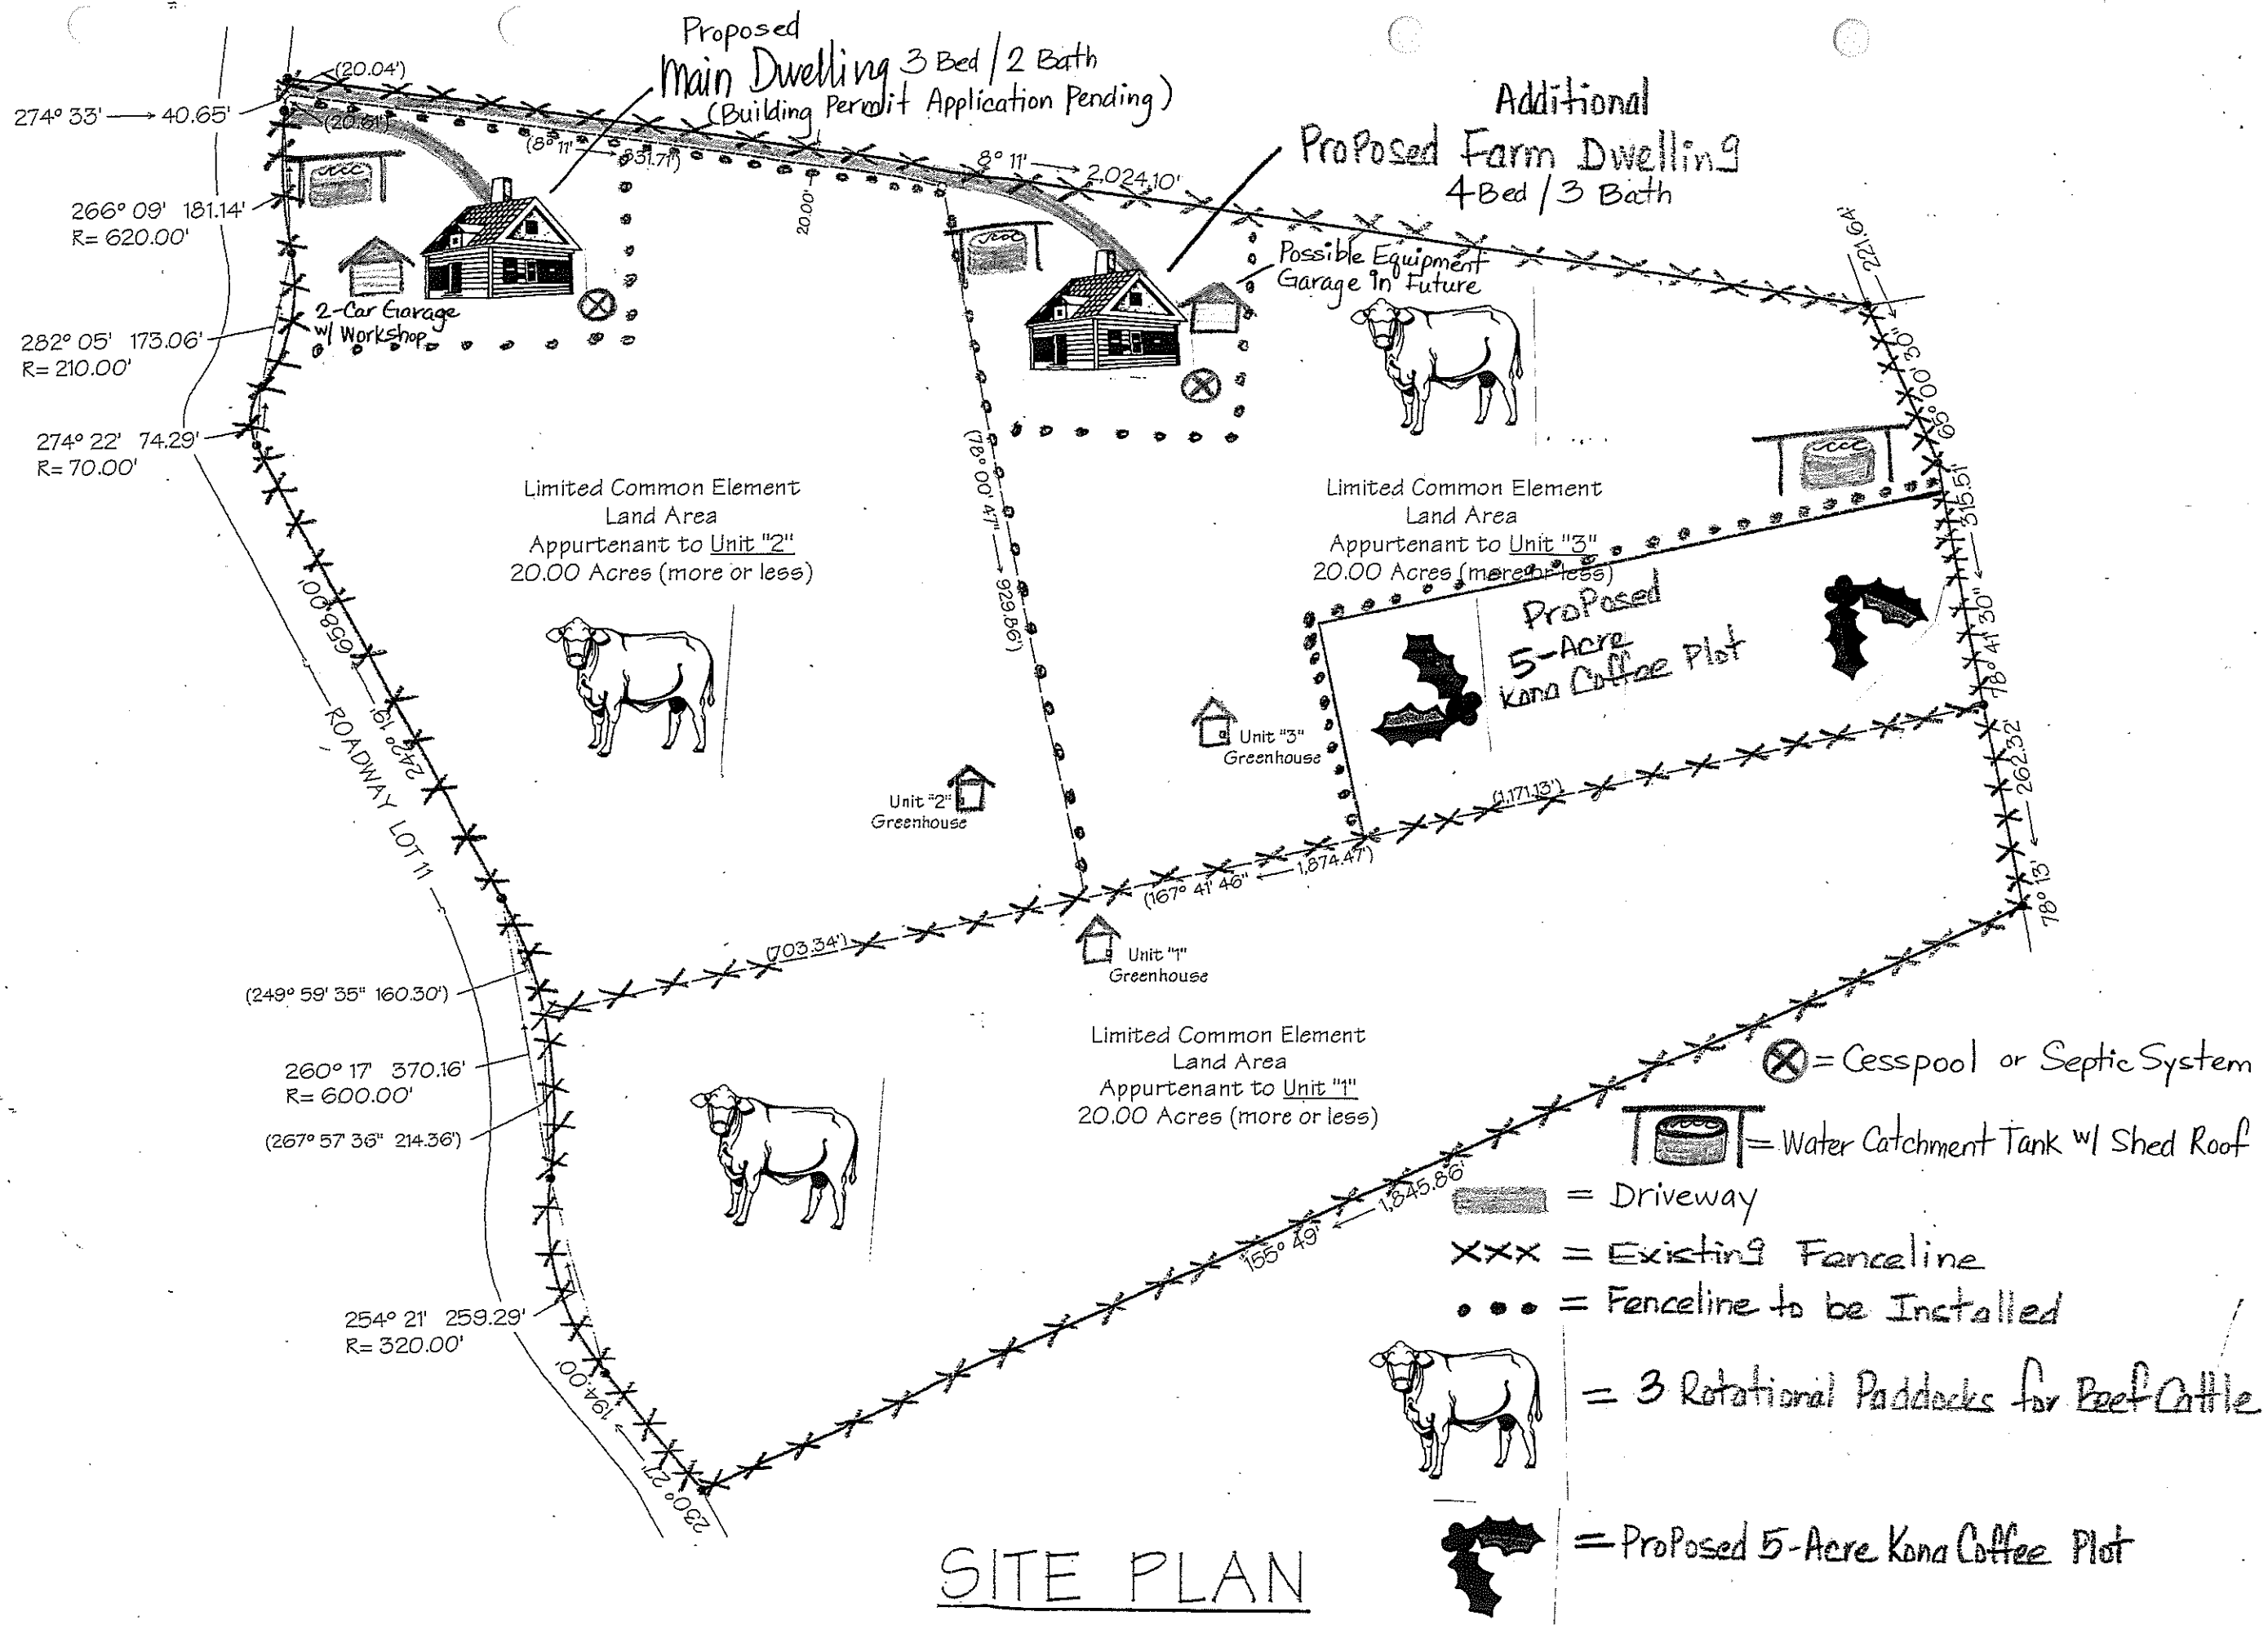 Proposed
Main Dwelling 3 Bed / 2 Bath
(Building Permit Application Pending)
Additional
Proposed Farm Dwelling
4 Bed / 3 Bath
(20.04')
274° 33' 40.65'
(20.61')
(8° 11' 831.71')
8° 11' 2,024.10'
20.00'
266° 09' 181.14'
R= 620.00'
221.64'
65° 00' 30"
Possible Equipment
Garage In Future
2-Car Garage
w/ Workshop
282° 05' 173.06'
R= 210.00'
274° 22' 74.29'
R= 70.00'
Limited Common Element
Land Area
Appurtenant to Unit "2"
20.00 Acres (more or less)
(78° 00' 47" 929.86')
Limited Common Element
Land Area
Appurtenant to Unit "3"
20.00 Acres (more or less)
315.51'
78° 41' 30"
Proposed
5-Acre
Kona Coffee Plot
658.00'
242° 19'
ROADWAY LOT 11
Unit "3"
Greenhouse
Unit "2"
Greenhouse
(1,171.13')
262.32'
78° 13'
(167° 41' 46" 1,874.47')
(703.34')
Unit "1"
Greenhouse
(249° 59' 35" 160.30')
260° 17' 370.16'
R= 600.00'
(267° 57' 36" 214.36')
Limited Common Element
Land Area
Appurtenant to Unit "1"
20.00 Acres (more or less)
155° 49' 1,845.86'
254° 21' 259.29'
R= 320.00'
194.00'
230° 27'
= Cesspool or Septic System
= Water Catchment Tank w/ Shed Roof
= Driveway
xxx = Existing Fenceline
• • • = Fenceline to be Installed
= 3 Rotational Paddocks for Beef Cattle
= Proposed 5-Acre Kona Coffee Plot
SITE PLAN